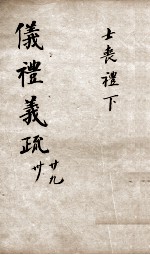 士喪禮下
儀禮義疏
廿九
卅